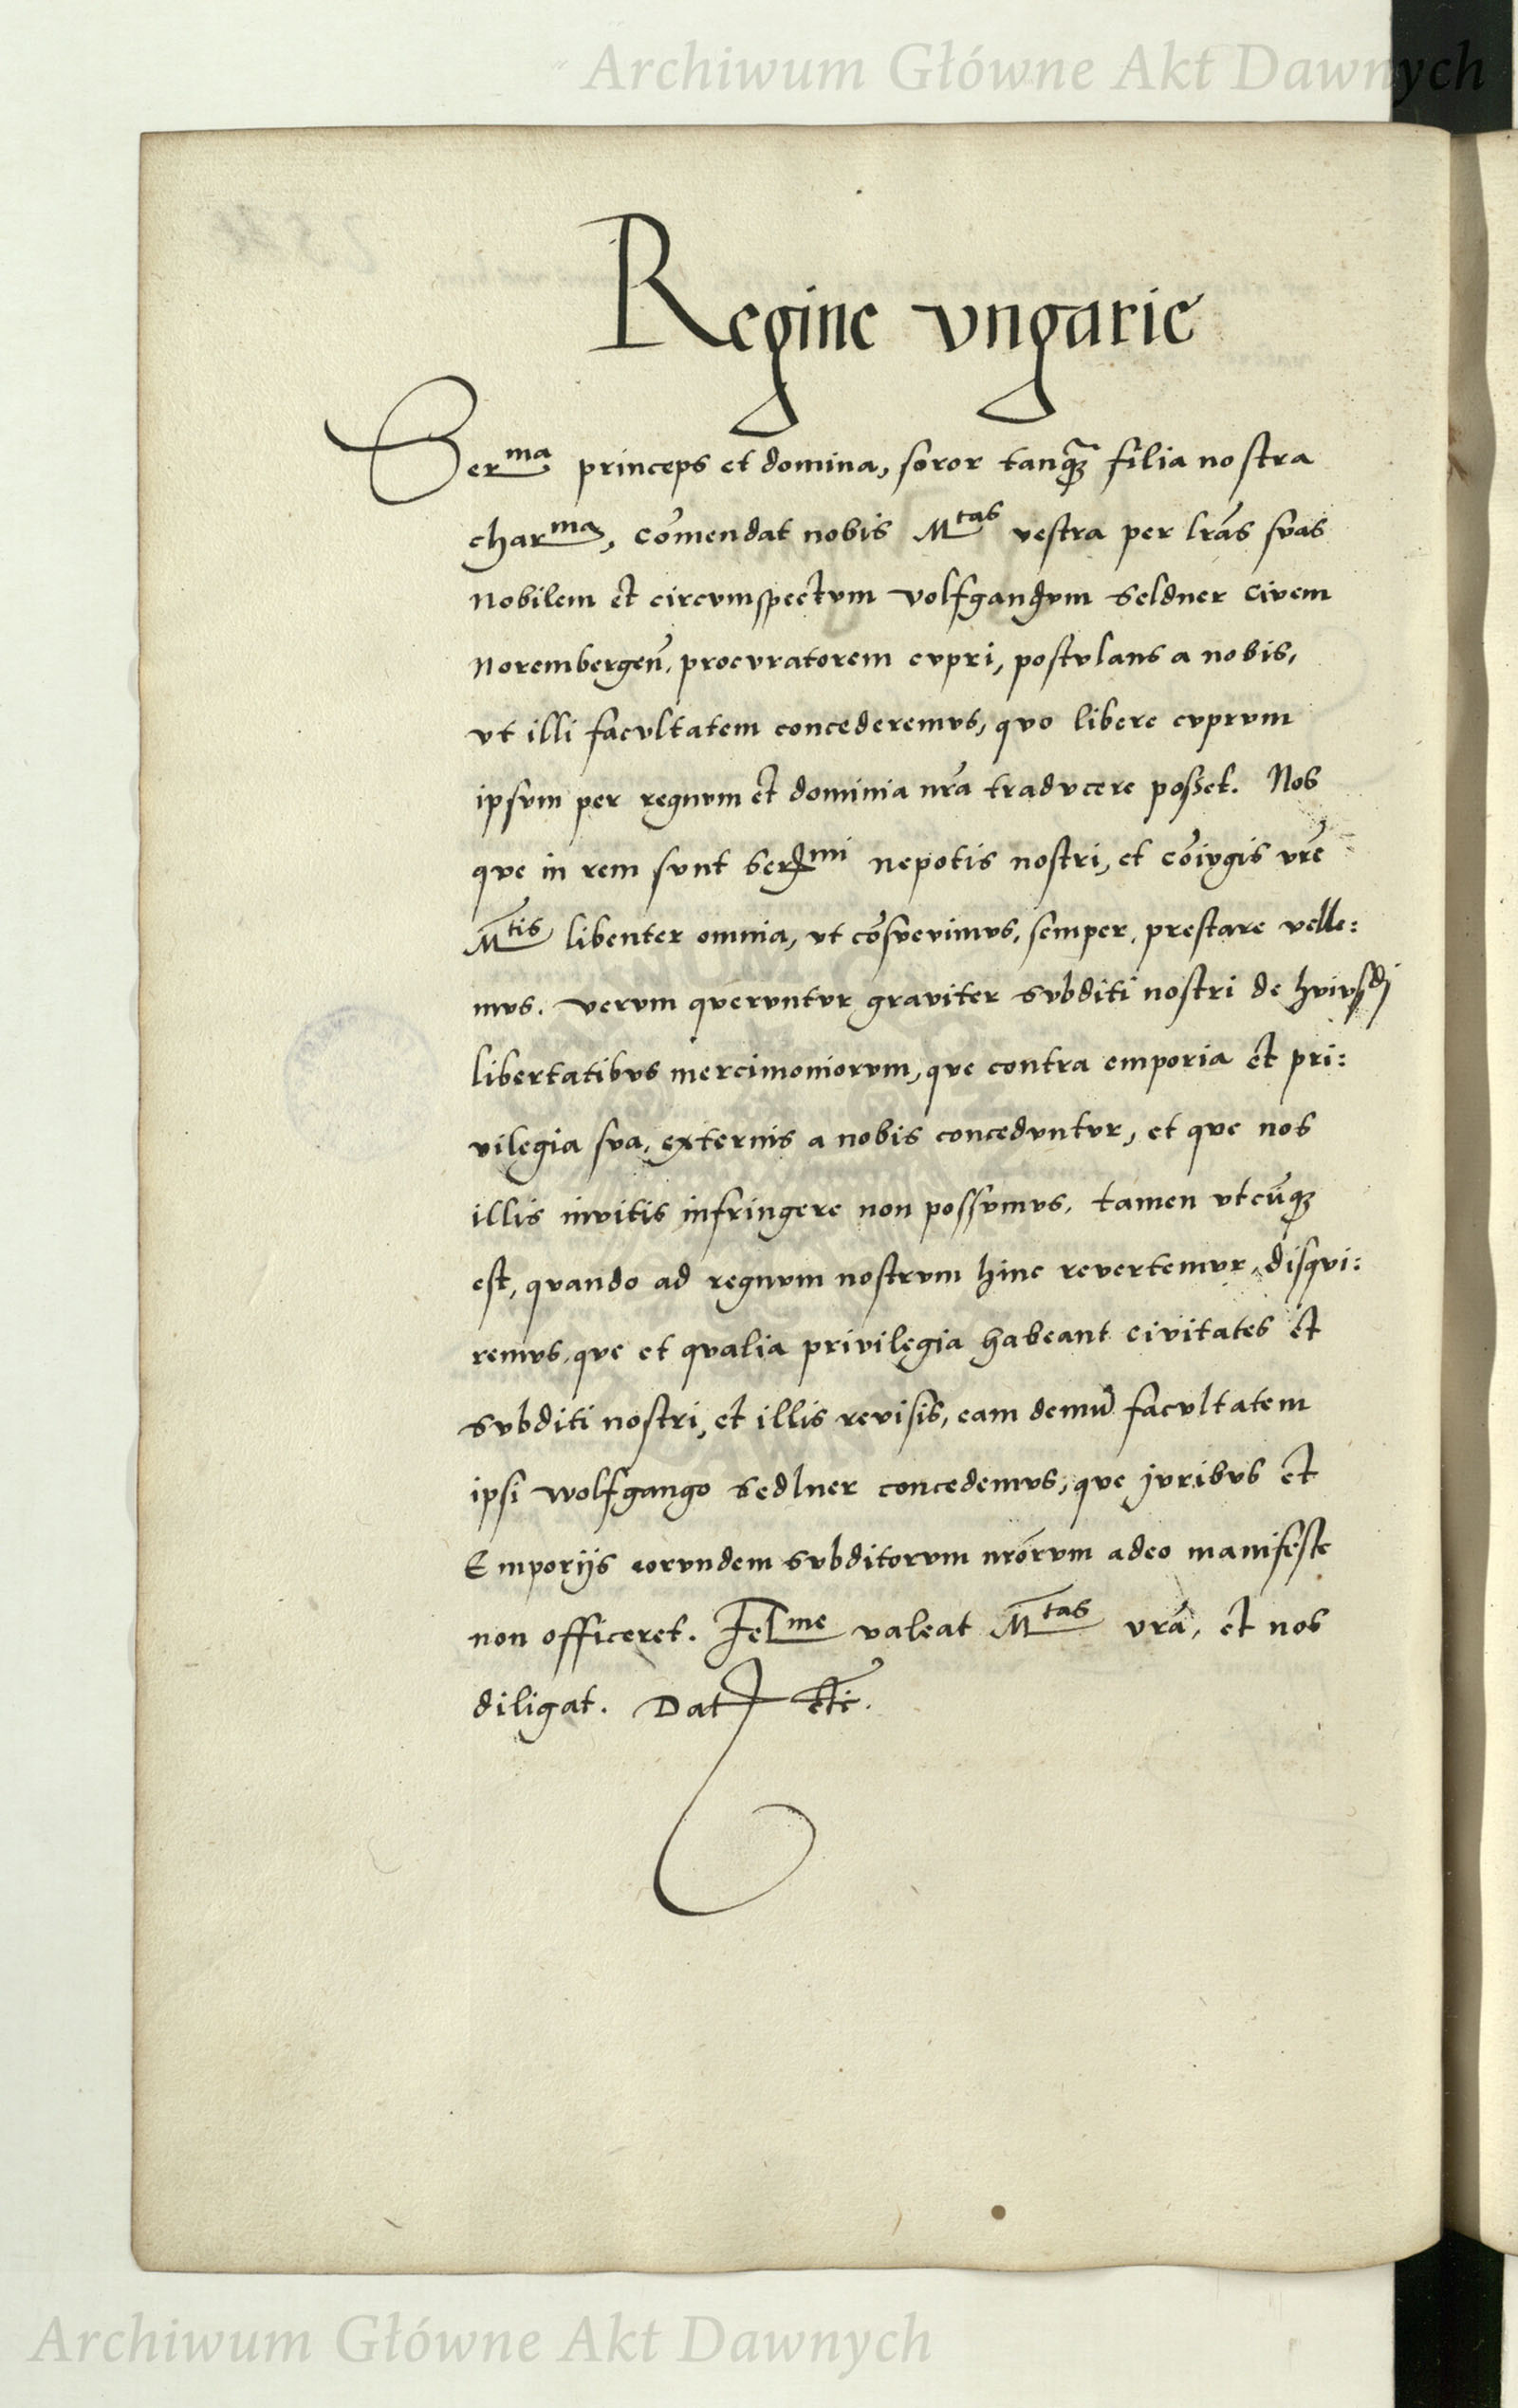 Archiwum Główne Akt Dawnych
Regine vngarie
Serma princeps et domina, soror tanq̃ filia nostra
charma, com̃endat nobis Mtas vestra per lr̃as svas
nobilem et circvmspectvm volfgangvm seldner civem
Norembergeñ, procvratorem cvpri, postvlans a nobis,
vt illi facvltatem concederemvs, qvo libere cvprvm
ipsvm per regnvm et dominia nr̃a tradvcere posset. Nos
qve in rem svnt sermi nepotis nostri, et cõivgis vr̃e
Mtis libenter omnia, vt cõsvevimvs, semper, prestare velle:
mvs. vervm qvervntvr graviter svbditi nostri de hvivsdj
libertatibvs mercimoniorvm, qve contra emporia et pri:
vilegia sva, externis a nobis concedvntvr, et qve nos
illis invitis infringere non possvmvs, tamen vtcũq
est, qvando ad regnvm nostrvm hinc revertemvr, disqvi:
remvs, qve et qvalia privilegia habeant civitates et
svbditi nostri, et illis revisis, eam demũ facvltatem
ipsi wolfgango sedlner concedemvs, qve jvribvs et
Emporijs eorvndem svbditorvm nr̃orvm adeo manifeste
non officeret. Felme valeat Mtas vr̃a, et nos
diligat. Dat etc̃.
Archiwum Główne Akt Dawnych